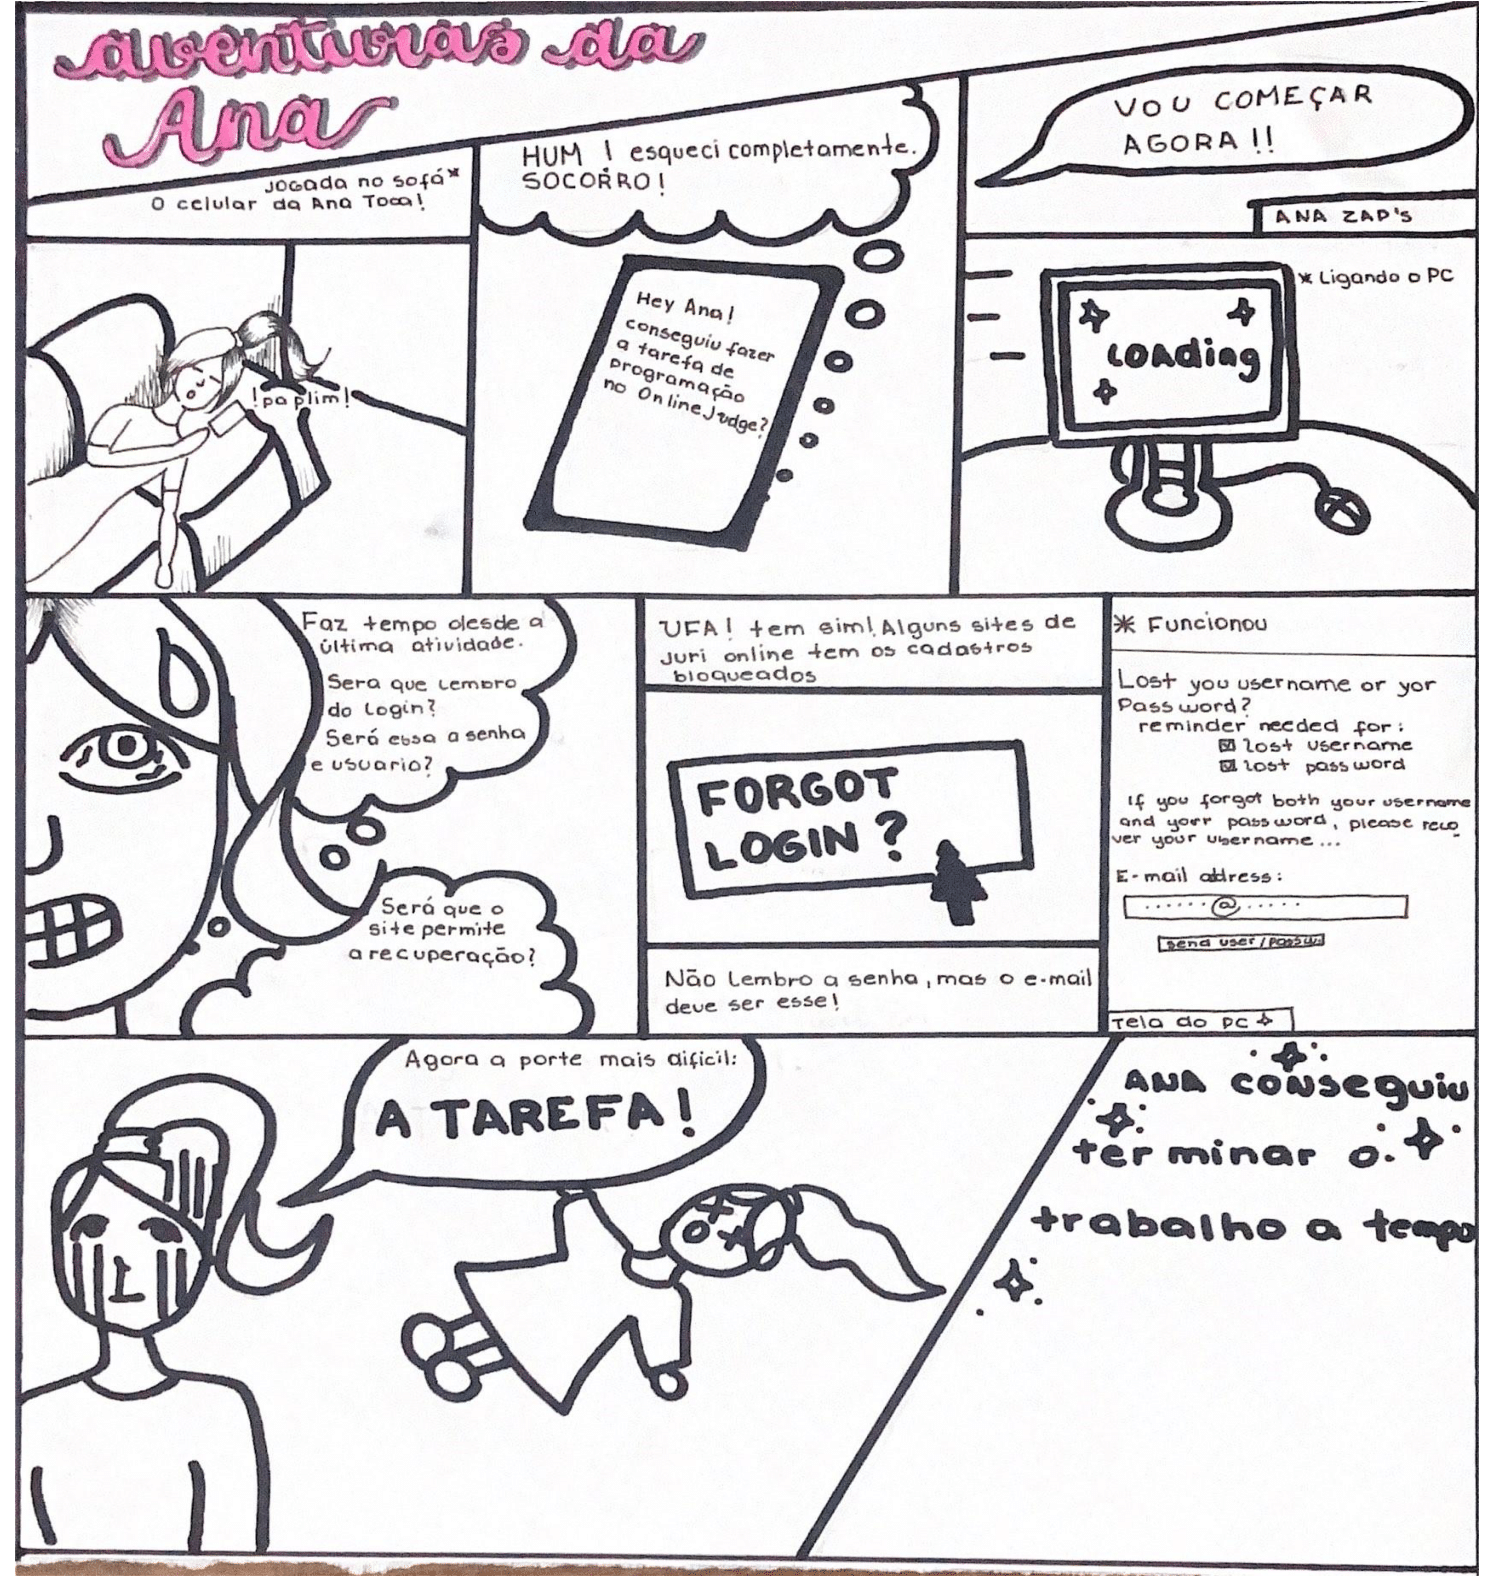 aventuras da
Ana
Jogada no sofá*
O celular da Ana Toca!
!paplim!
HUM ! esqueci completamente.
SOCORRO!
Hey Ana!
conseguiu fazer
a tarefa de
programação
no OnlineJudge?
VOU COMEÇAR
AGORA!!
ANA ZAP's
* Ligando o PC
Loading
Faz tempo desde a
última atividade.
Sera que Lembro
do Login?
Será essa a senha
e usuario?
Será que o
site permite
a recuperação?
UFA! tem sim! Alguns sites de
Juri online tem os cadastros
bloqueados
FORGOT
LOGIN?
Não Lembro a senha, mas o e-mail
deve ser esse!
* Funcionou
Lost you username or yor
Password?
reminder needed for:
lost username
lost password
If you forgot both your username
and yorr password, please reco
ver your username...
E-mail address:
......@.....
send user/passw.
Tela do PC
Agora a parte mais dificil:
A TAREFA!
ANA conseguiu
terminar o
trabalho a tempo